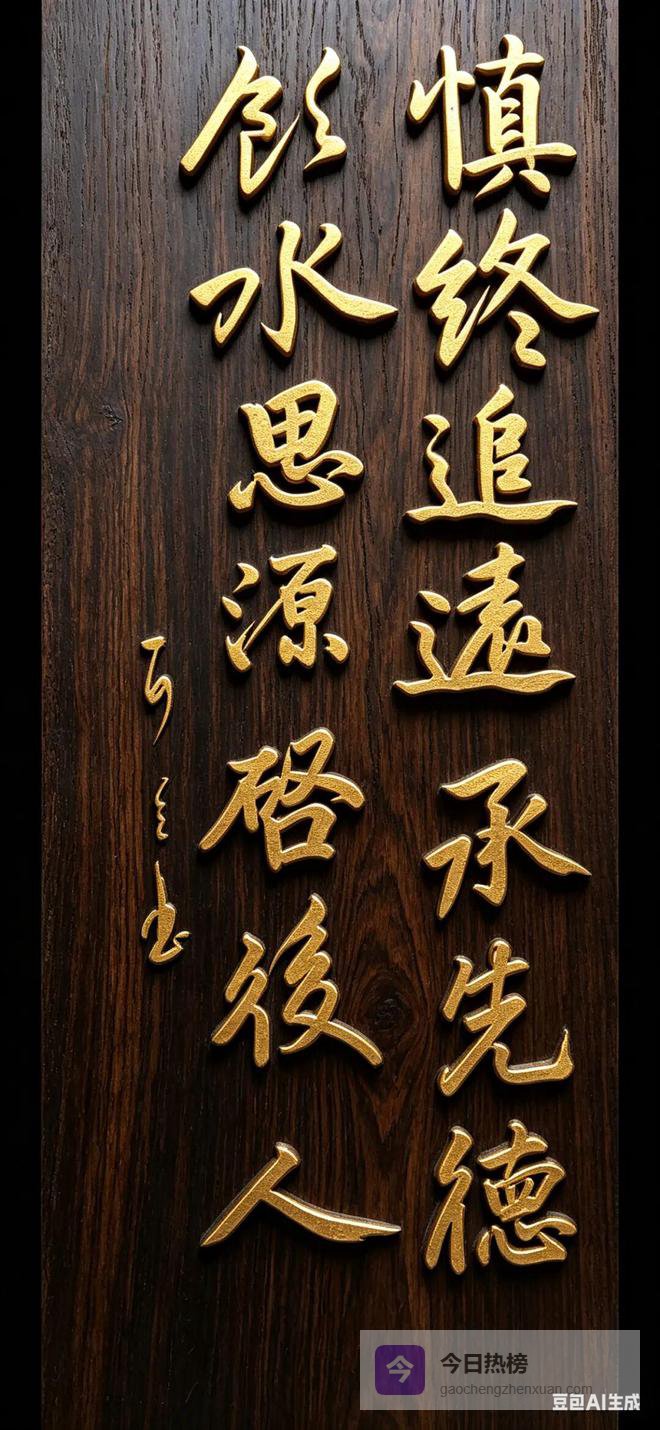 慎終追遠承先德
飲水思源啓後人
今 今日热榜
gaochengzhenxuan.com
豆包AI生成